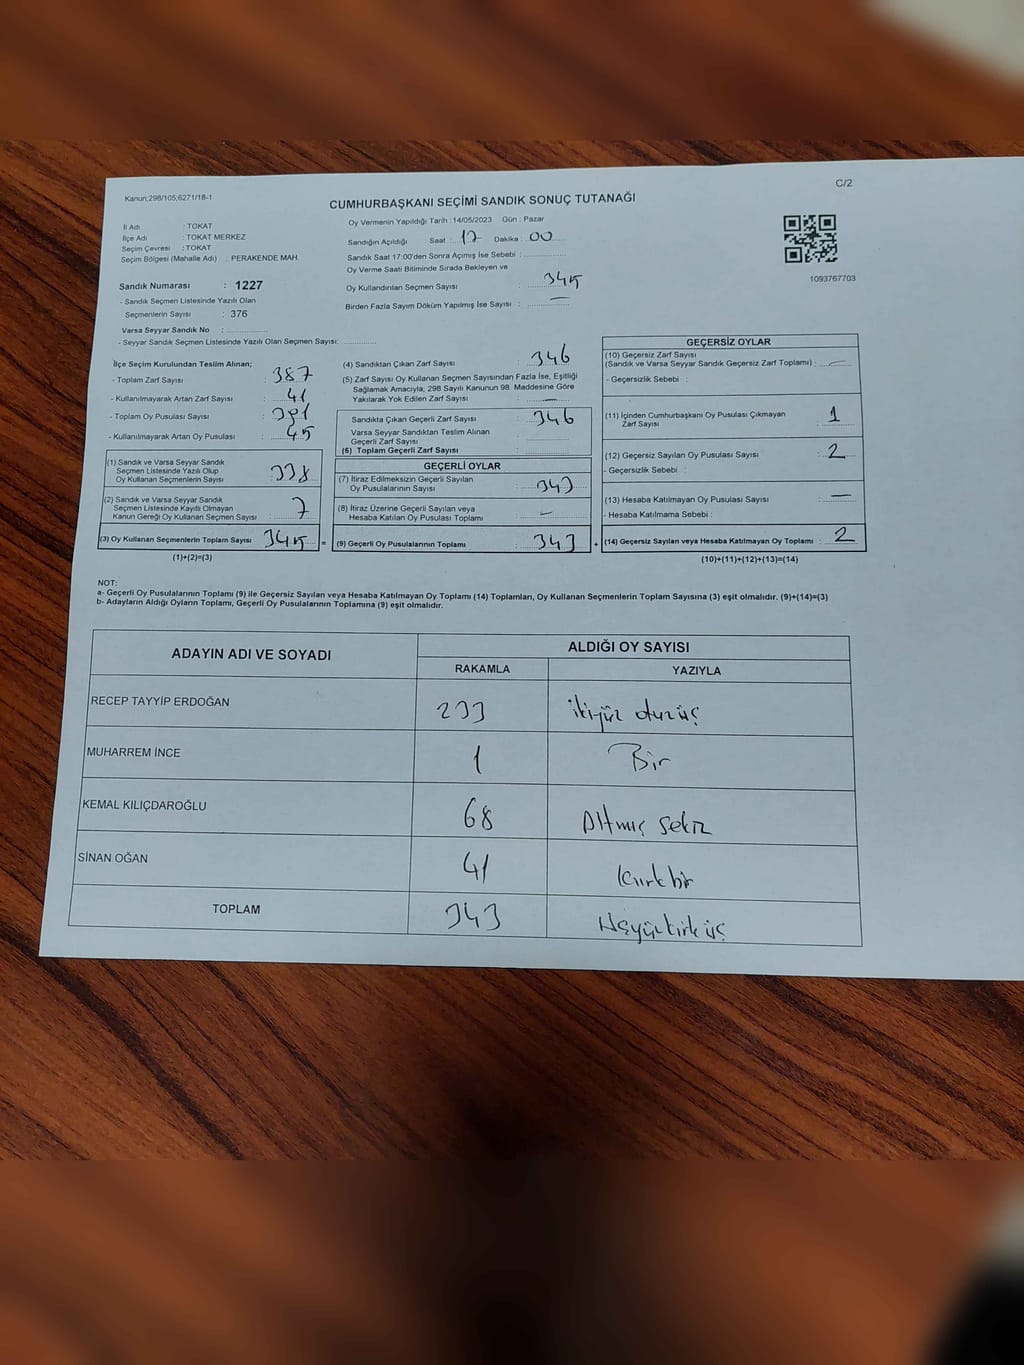 Kanun;298/105;6271/18-1
C/2
CUMHURBAŞKANI SEÇİMİ SANDIK SONUÇ TUTANAĞI
İl Adı : TOKAT
İlçe Adı : TOKAT MERKEZ
Seçim Çevresi : TOKAT
Seçim Bölgesi (Mahalle Adı) : PERAKENDE MAH.
Sandık Numarası : 1227
- Sandık Seçmen Listesinde Yazılı Olan
Seçmenlerin Sayısı : 376
Varsa Seyyar Sandık No :
- Seyyar Sandık Seçmen Listesinde Yazılı Olan Seçmen Sayısı:
Oy Vermenin Yapıldığı Tarih :14/05/2023 Gün : Pazar
Sandığın Açıldığı Saat : 17 Dakika : 00
Sandık Saat 17:00'den Sonra Açımış İse Sebebi :
Oy Verme Saati Bitiminde Sırada Bekleyen ve
Oy Kullandırılan Seçmen Sayısı : 345
Birden Fazla Sayım Döküm Yapılmış İse Sayısı : —
1093767703
İlçe Seçim Kurulundan Teslim Alınan;
- Toplam Zarf Sayısı : 387
- Kullanılmayarak Artan Zarf Sayısı : 41
- Toplam Oy Pusulası Sayısı : 391
- Kullanılmayarak Artan Oy Pusulası : 45
(1) Sandık ve Varsa Seyyar Sandık
Seçmen Listesinde Yazılı Olup
Oy Kullanan Seçmenlerin Sayısı : 338
(2) Sandık ve Varsa Seyyar Sandık
Seçmen Listesinde Kayıtlı Olmayan
Kanun Gereği Oy Kullanan Seçmen Sayısı : 7
(3) Oy Kullanan Seçmenlerin Toplam Sayısı 345 =
(1)+(2)=(3)
(4) Sandıktan Çıkan Zarf Sayısı : 346
(5) Zarf Sayısı Oy Kullanan Seçmen Sayısından Fazla İse, Eşitliği
Sağlamak Amacıyla; 298 Sayılı Kanunun 98. Maddesine Göre
Yakılarak Yok Edilen Zarf Sayısı : —
Sandıkta Çıkan Geçerli Zarf Sayısı : 346
Varsa Seyyar Sandıktan Teslim Alınan
Geçerli Zarf Sayısı :
(6) Toplam Geçerli Zarf Sayısı :
GEÇERLİ OYLAR
(7) İtiraz Edilmeksizin Geçerli Sayılan
Oy Pusulalarının Sayısı : 343
(8) İtiraz Üzerine Geçerli Sayılan veya
Hesaba Katılan Oy Pusulası Toplamı : —
(9) Geçerli Oy Pusulalarının Toplamı : 343 +
GEÇERSİZ OYLAR
(10) Geçersiz Zarf Sayısı
(Sandık ve Varsa Seyyar Sandık Geçersiz Zarf Toplamı) : —
- Geçersizlik Sebebi :
(11) İçinden Cumhurbaşkanı Oy Pusulası Çıkmayan
Zarf Sayısı : 1
(12) Geçersiz Sayılan Oy Pusulası Sayısı : 2
- Geçersizlik Sebebi :
(13) Hesaba Katılmayan Oy Pusulası Sayısı : —
- Hesaba Katılmama Sebebi :
(14) Geçersiz Sayılan veya Hesaba Katılmayan Oy Toplamı : 2
(10)+(11)+(12)+(13)=(14)
NOT:
a- Geçerli Oy Pusulalarının Toplamı (9) ile Geçersiz Sayılan veya Hesaba Katılmayan Oy Toplamı (14) Toplamları, Oy Kullanan Seçmenlerin Toplam Sayısına (3) eşit olmalıdır. (9)+(14)=(3)
b- Adayların Aldığı Oyların Toplamı, Geçerli Oy Pusulalarının Toplamına (9) eşit olmalıdır.
ADAYIN ADI VE SOYADI ALDIĞI OY SAYISI
RAKAMLA YAZIYLA
RECEP TAYYİP ERDOĞAN 233 ikiyüz otuzüç
MUHARREM İNCE 1 Bir
KEMAL KILIÇDAROĞLU 68 Altmış sekiz
SİNAN OĞAN 41 kırkbir
TOPLAM 343 Üçyüzkırküç